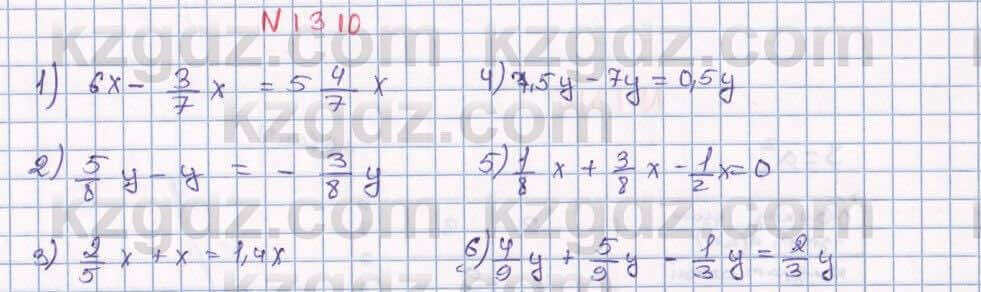 N 1310
1) 6x - 3/7 x = 5 4/7 x
2) 5/8 y - y = - 3/8 y
3) 2/5 x + x = 1,4x
4) 7,5y - 7y = 0,5y
5) 1/8 x + 3/8 x - 1/2 x = 0
6) 4/9 y + 5/9 y - 1/3 y = 2/3 y
kzgdz.com
kzgdz.com
kzgdz.com
kzgdz.com
kzgdz.com
kzgdz.com